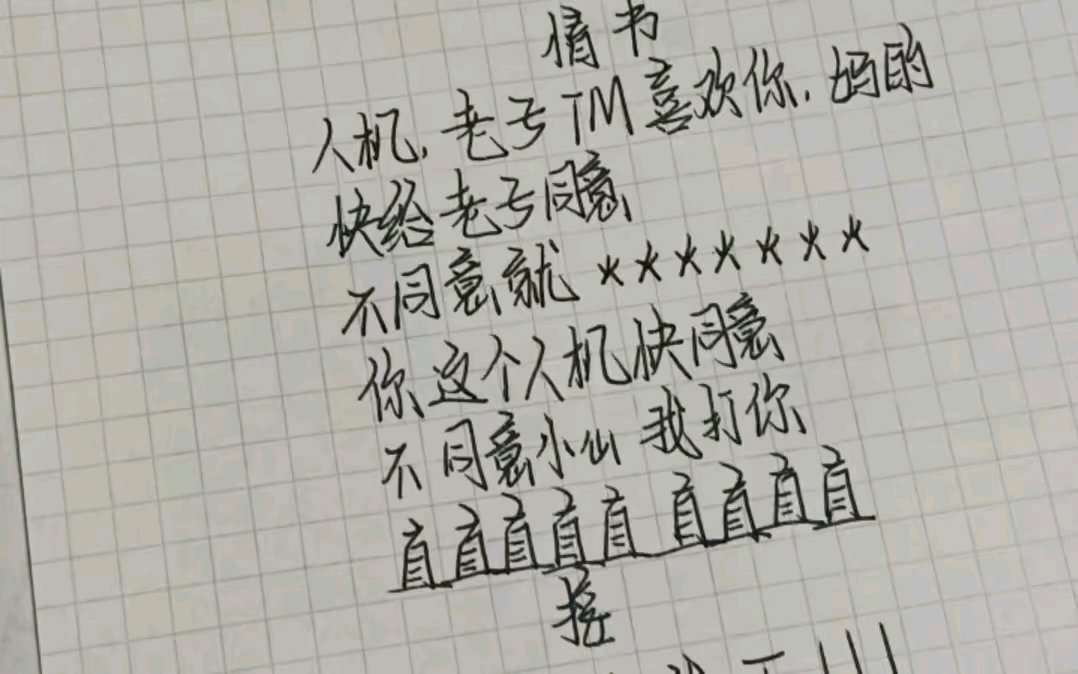 情书
人机，老亏TM喜欢你，妈的
快给老亏同意
不同意就*******
你这个人机快同意
不同意小心我打你
直直直直直直直直直